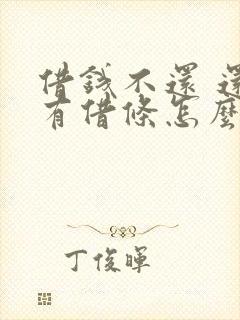 借錢不還 還
有借條怎麼
丁俊暉